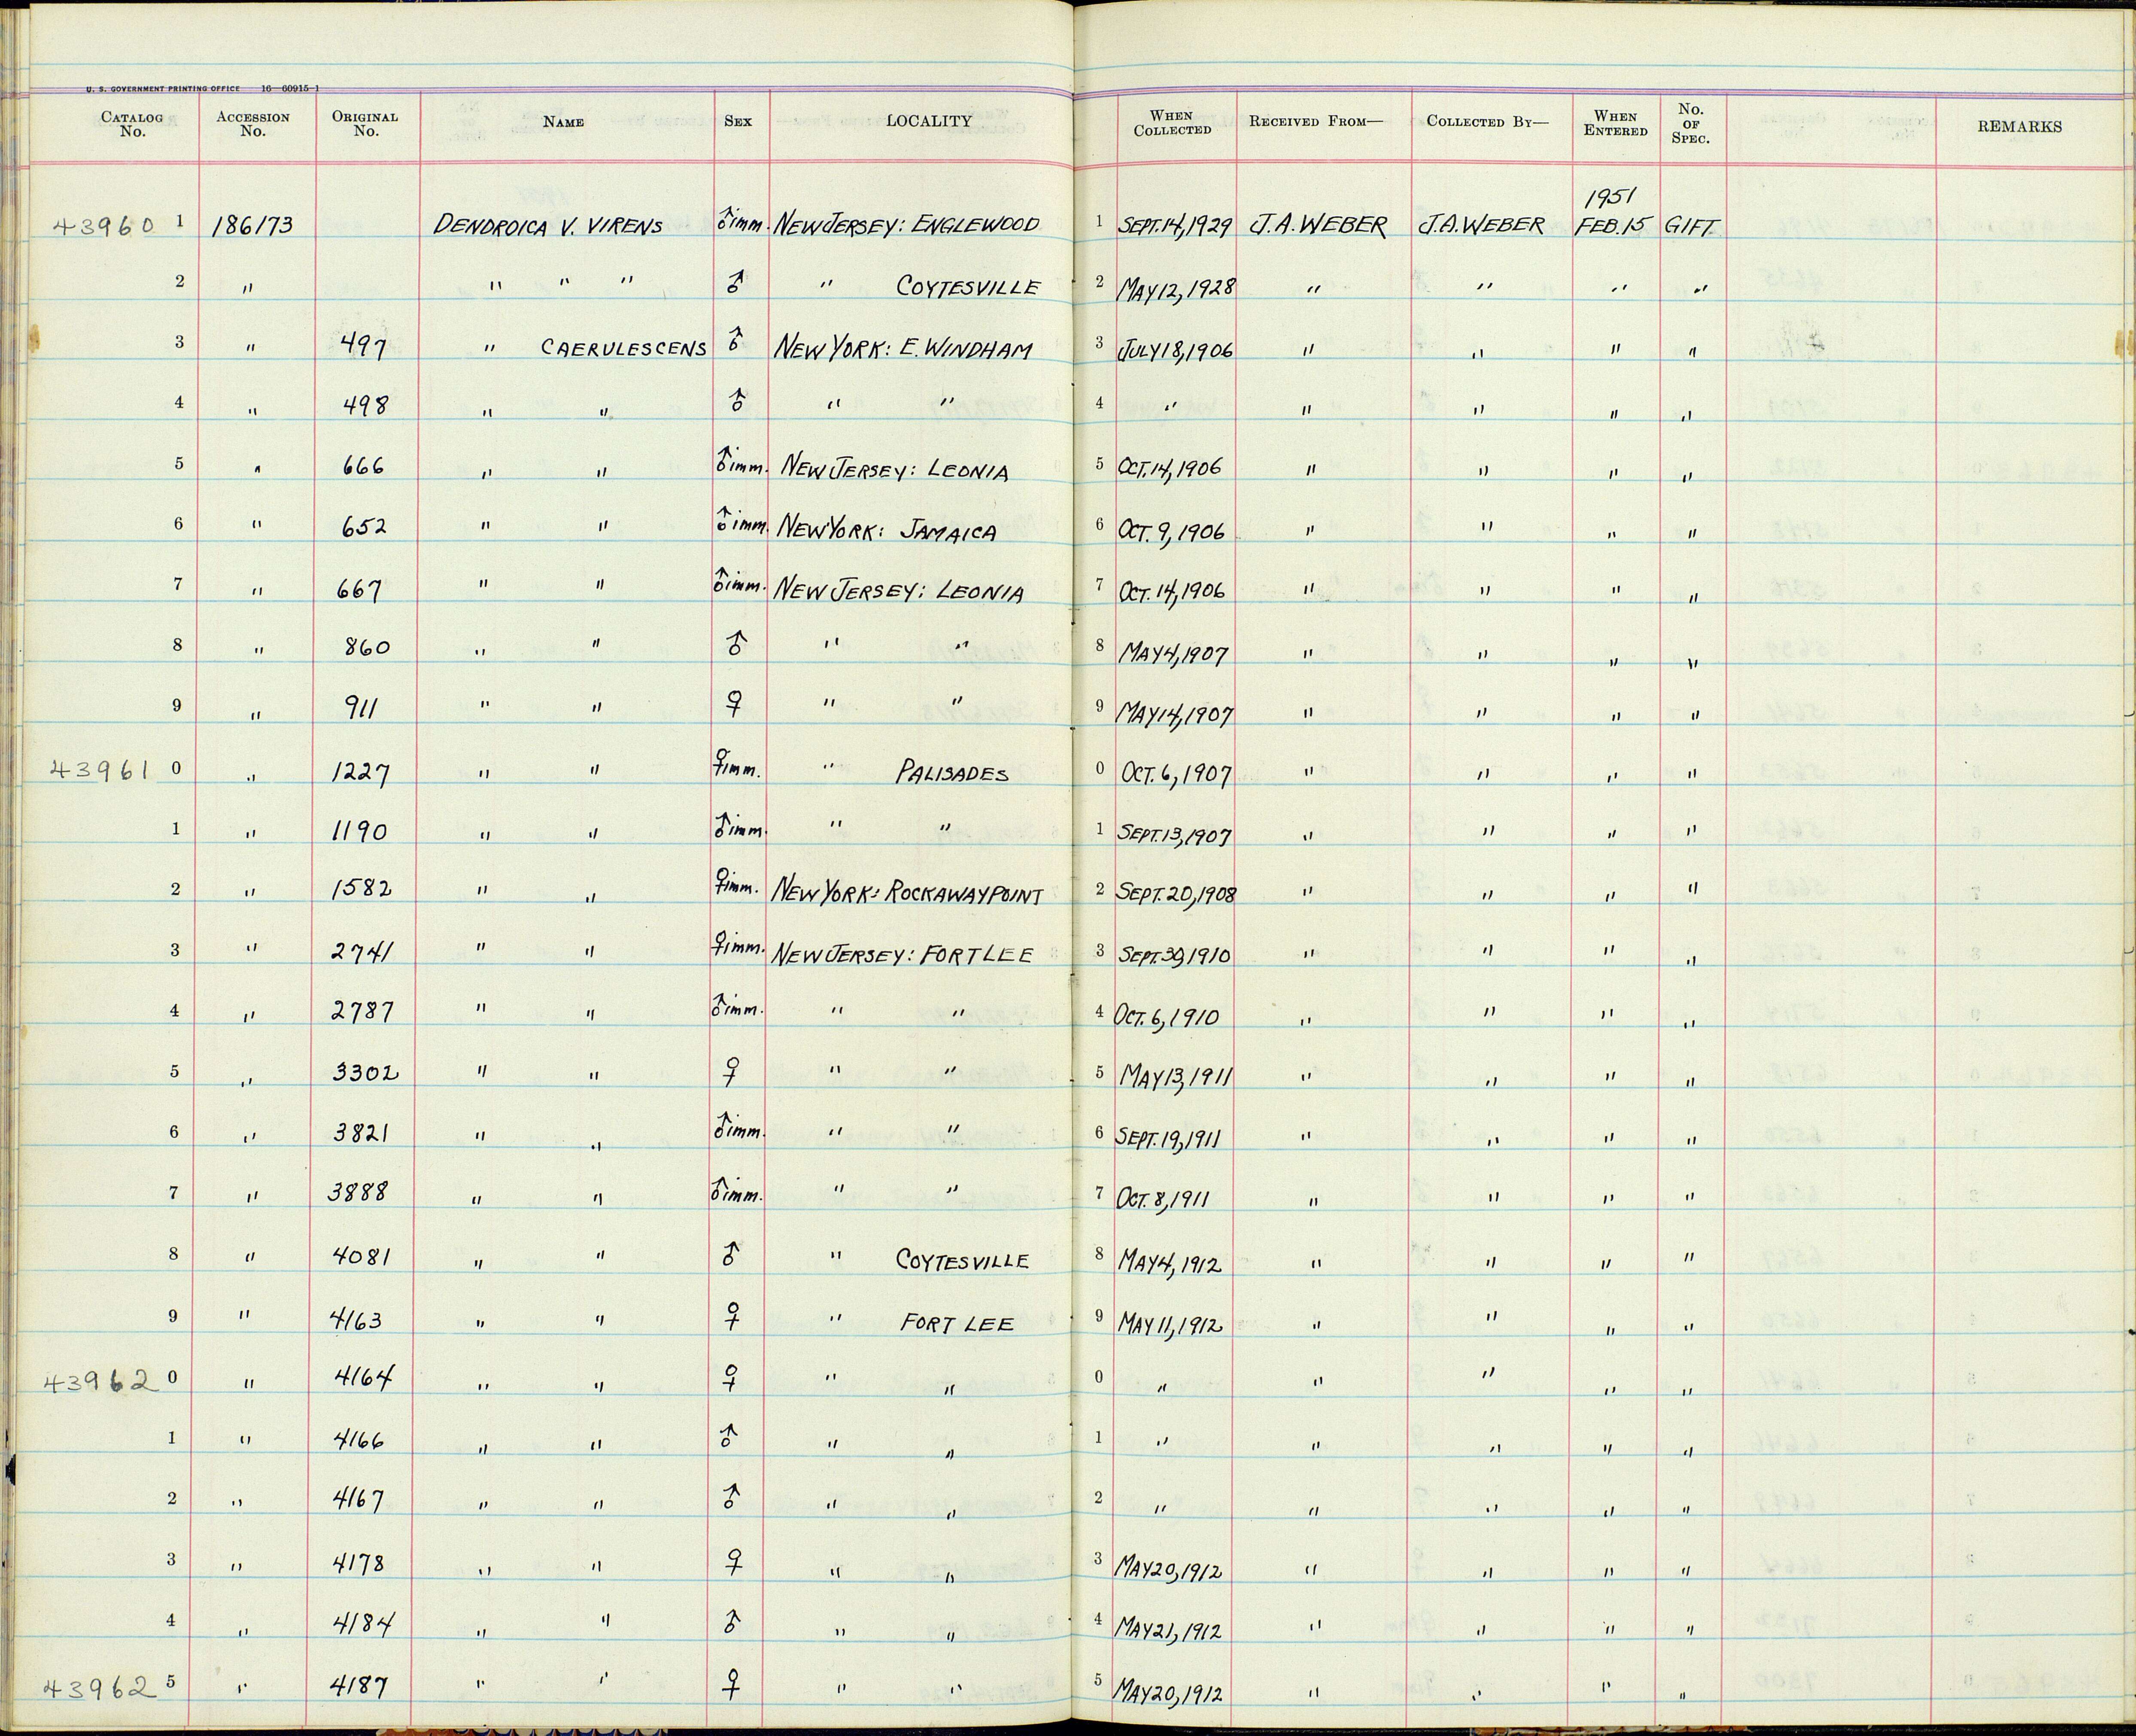 U. S. GOVERNMENT PRINTING OFFICE 16—60915-1
CATALOG No. ACCESSION No. ORIGINAL No. NAME SEX LOCALITY WHEN COLLECTED RECEIVED FROM— COLLECTED BY— WHEN ENTERED No. OF SPEC. REMARKS
1951
43960 1 186173 DENDROICA V. VIRENS ♂imm. NEW JERSEY: ENGLEWOOD 1 SEPT. 14, 1929 J. A. WEBER J. A. WEBER FEB. 15 GIFT
2 " " " " ♂ " COYTESVILLE 2 MAY 12, 1928 " " " "
3 " 497 " CAERULESCENS ♂ NEW YORK: E. WINDHAM 3 JULY 18, 1906 " " " "
4 " 498 " " ♂ " " 4 " " " " "
5 " 666 " " ♂imm. NEW JERSEY: LEONIA 5 OCT. 14, 1906 " " " "
6 " 652 " " ♂imm. NEW YORK: JAMAICA 6 OCT. 9, 1906 " " " "
7 " 667 " " ♂imm. NEW JERSEY: LEONIA 7 OCT. 14, 1906 " " " "
8 " 860 " " ♂ " " 8 MAY 4, 1907 " " " "
9 " 911 " " ♀ " " 9 MAY 14, 1907 " " " "
43961 0 " 1227 " " ♀imm. " PALISADES 0 OCT. 6, 1907 " " " "
1 " 1190 " " ♂imm. " " 1 SEPT. 13, 1907 " " " "
2 " 1582 " " ♀imm. NEW YORK: ROCKAWAY POINT 2 SEPT. 20, 1908 " " " "
3 " 2741 " " ♀imm. NEW JERSEY: FORT LEE 3 SEPT. 30, 1910 " " " "
4 " 2787 " " ♂imm. " " 4 OCT. 6, 1910 " " " "
5 " 3302 " " ♀ " " 5 MAY 13, 1911 " " " "
6 " 3821 " " ♂imm. " " 6 SEPT. 19, 1911 " " " "
7 " 3888 " " ♂imm. " " 7 OCT. 8, 1911 " " " "
8 " 4081 " " ♂ " COYTESVILLE 8 MAY 4, 1912 " " " "
9 " 4163 " " ♀ " FORT LEE 9 MAY 11, 1912 " " " "
43962 0 " 4164 " " ♀ " " 0 " " " " "
1 " 4166 " " ♂ " " 1 " " " " "
2 " 4167 " " ♂ " " 2 " " " " "
3 " 4178 " " ♀ " " 3 MAY 20, 1912 " " " "
4 " 4184 " " ♂ " " 4 MAY 21, 1912 " " " "
43962 5 " 4187 " " ♀ " " 5 MAY 20, 1912 " " " "